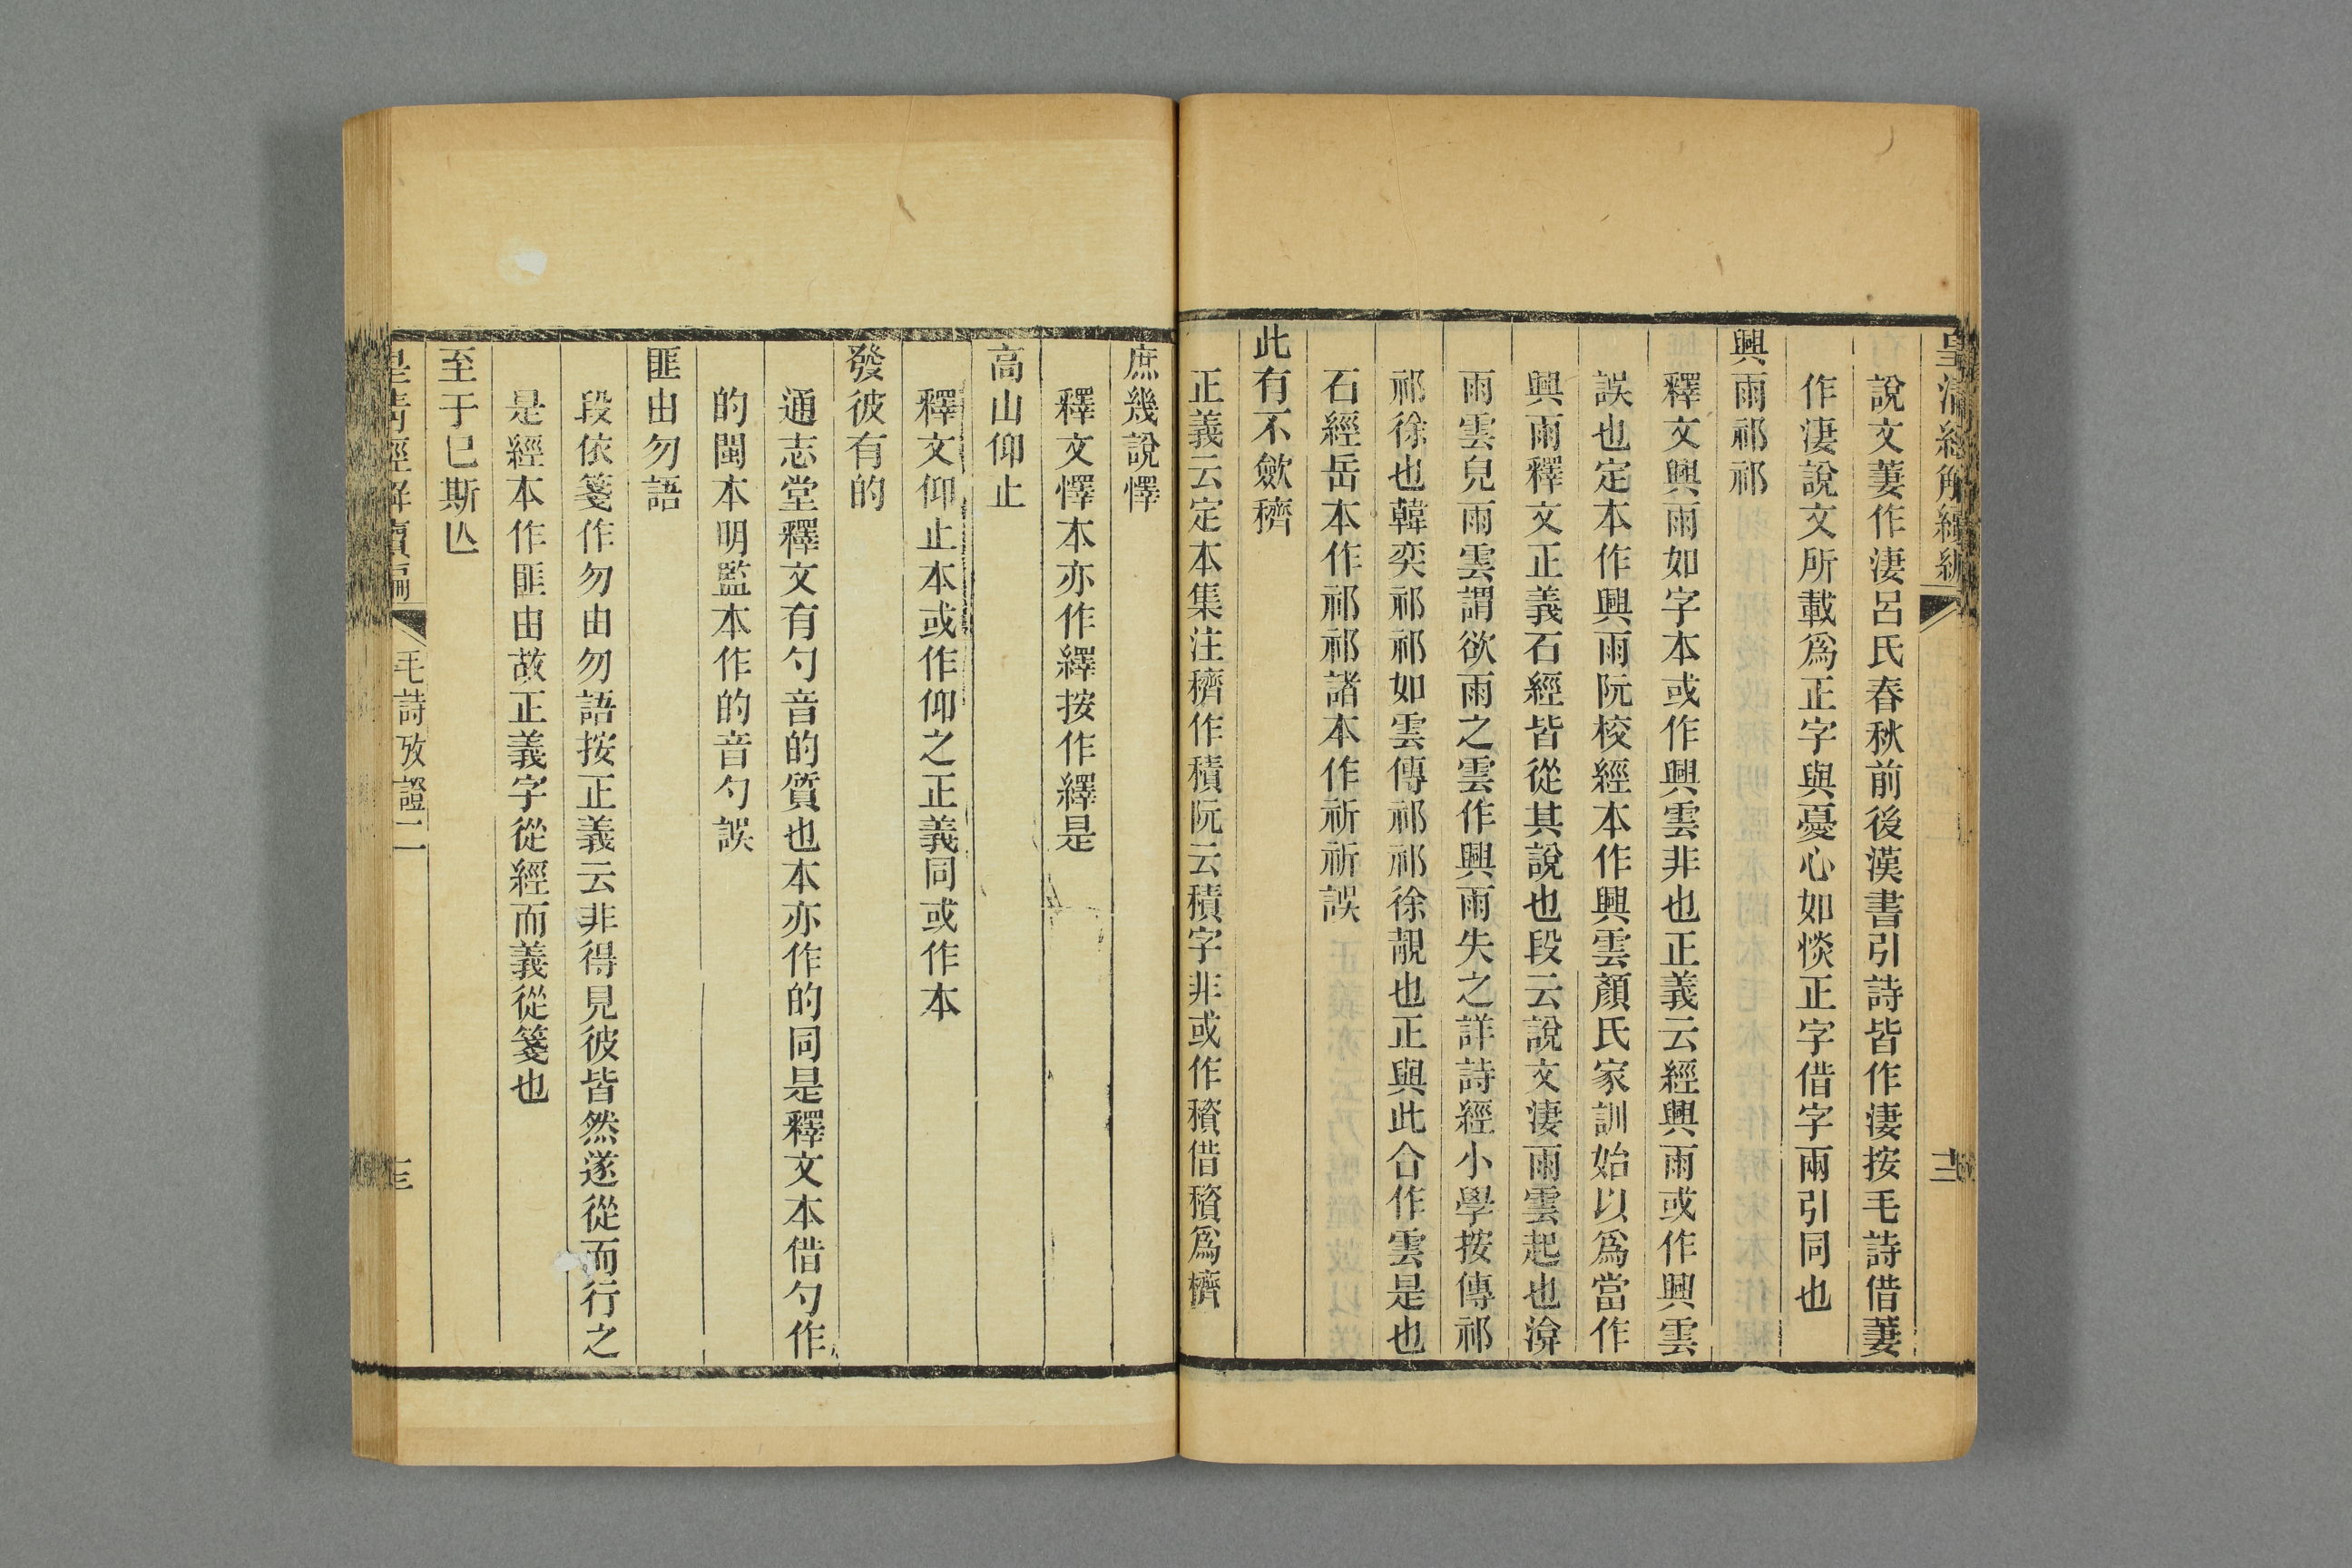 皇清經解續編
十二
說文萋作淒呂氏春秋前後漢書引詩皆作淒按毛詩借萋
作淒說文所載爲正字與憂心如惔正字借字兩引同也
興雨祁祁
釋文興雨如字本或作興雲非也正義云經興雨或作興雲
誤也定本作興雨阮校經本作興雲顏氏家訓始以爲當作
興雨釋文正義石經皆從其說也段云說文淒雨雲起也渰
雨雲皃雨雲謂欲雨之雲作興雨失之詳詩經小學按傳祁
祁徐也韓奕祁祁如雲傳祁祁徐靚也正與此合作雲是也
石經岳本作祁祁諸本作祈祈誤
此有不斂穧
正義云定本集注穧作積阮云積字非或作穧借穧爲櫅
庶幾說懌
釋文懌本亦作繹按作繹是
高山仰止
釋文仰止本或作仰之正義同或作本
發彼有的
通志堂釋文有勺音的質也本亦作的同是釋文本借勺作
的閩本明監本作的音勺誤
匪由勿語
段依箋作勿由勿語按正義云非得見彼皆然遂從而行之
是經本作匪由故正義字從經而義從箋也
至于已斯亾
皇清經解續編
毛詩攷證二
十三